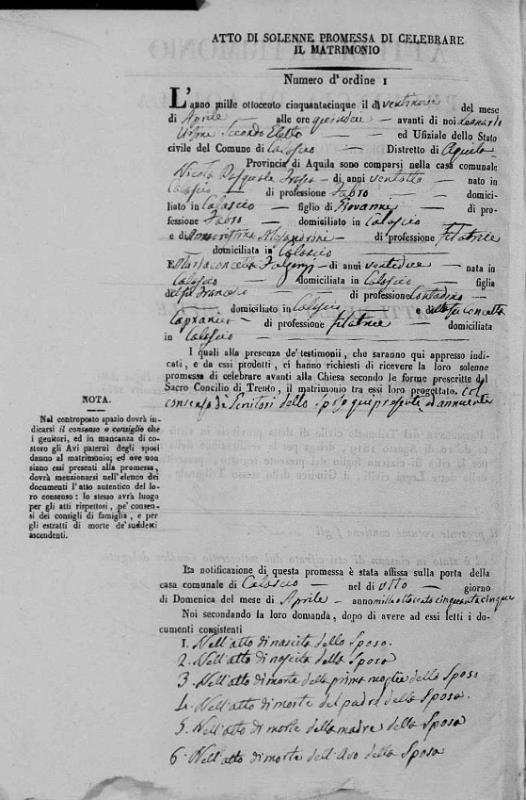 ATTO DI SOLENNE PROMESSA DI CELEBRARE
IL MATRIMONIO
Numero d'ordine 1
L'anno mille ottocento cinquantacinque il dì ventinove del mese
di Aprile alle ore quindeci avanti di noi Leonardo
Secondo Eletto ed Ufiziale dello Stato
civile del Comune di Calascio Distretto di Aquila
Provincia di Aquila sono comparsi nella casa comunale
Nicola Pasquale di anni ventotto nato in
Calascio di professione Fabro domici-
liato in Calascio figlio di Giovanni di pro-
fessione Fabro domiciliato in Calascio
e di Alesandrini di professione Filatrice
domiciliata in Calascio
E Mariaconcetta di anni ventedue nata in
Calascio domiciliata in Calascio figlia
del fu Francesco di professione Contadino
domiciliato in Calascio e della fu Concetta
di professione Filatrice domiciliata
in Calascio
I quali alla presenza de' testimonii, che saranno qui appresso indi-
cati, e da essi prodotti, ci hanno richiesti di ricevere la loro solenne
promessa di celebrare avanti alla Chiesa secondo le forme prescritte dal
Sacro Concilio di Trento, il matrimonio tra essi loro progettato. Col
consenso di Genitori dello Sposo qui presente ed annuente
NOTA.
Nel controposto spazio dovrà in-
dicarsi il consenso o consiglio che
i genitori, ed in mancanza di co-
storo gli Avi paterni degli sposi
danno al matrimonio; ed ove non
siano essi presenti alla promessa,
dovrà menzionarsi nell'elenco dei
documenti l'atto autentico del lo-
ro consenso: lo stesso avrà luogo
per gli atti rispettosi, pe' consen-
si dei consigli di famiglia, e per
gli estratti di morte de' suddetti
ascendenti.
La notificazione di questa promessa è stata affissa sulla porta della
casa comunale di Calascio nel dì otto giorno
di Domenica del mese di Aprile anno mille ottocento cinquantacinque
Noi secondando la loro domanda, dopo di avere ad essi letti i do-
cumenti consistenti
1. Nell'atto di nascita dello Sposo.
2. Nell'atto di nascita della Sposa
3. Nell'atto di morte della prima moglie dello Sposo
4. Nell'atto di morte del padre della Sposa.
5. Nell'atto di morte della madre della Sposa
6. Nell'atto di morte dell'Avo della Sposa